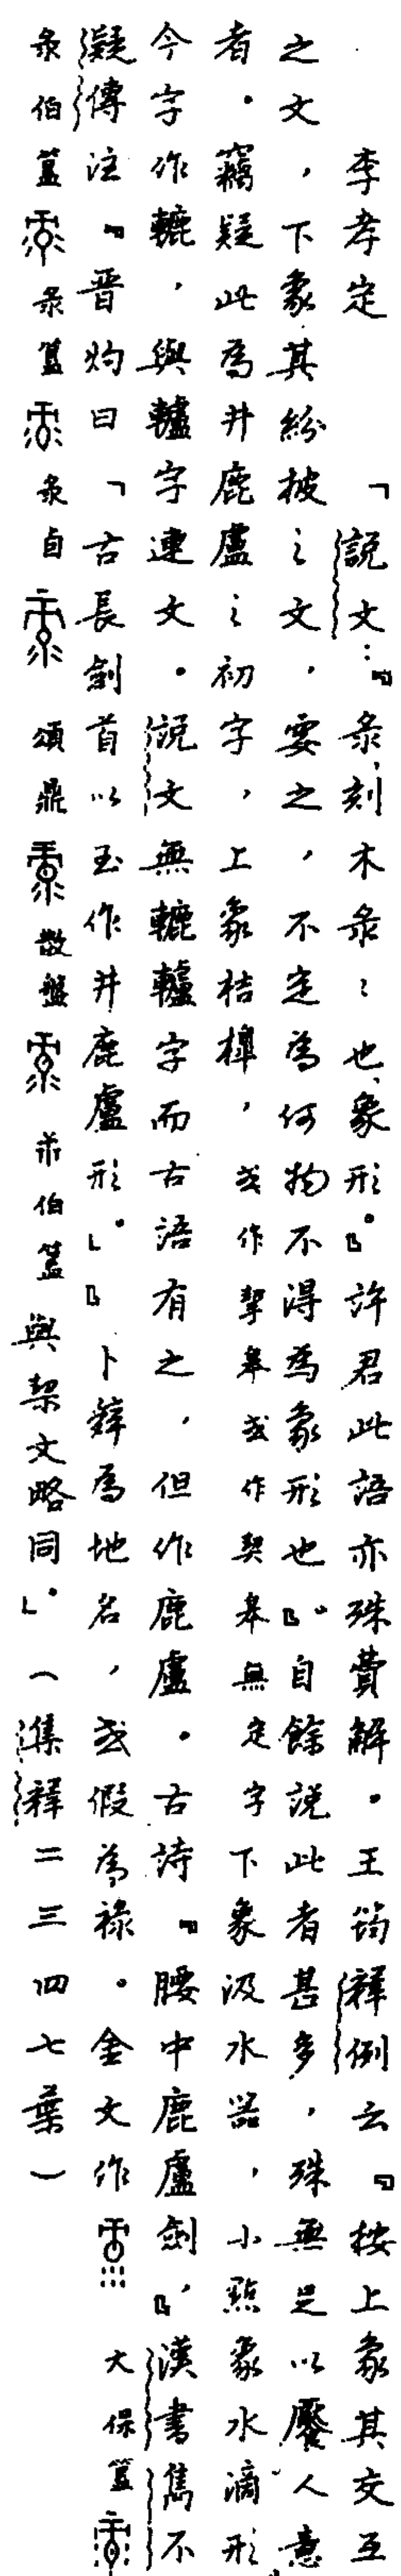 李孝定　「說文：『彔，刻木彔彔也，象形。』許君此語亦殊費解。王筠釋例云『按上象其交互
之文，下象其紛披之文，要之，不定為何物不得為象形也』。自餘說此者甚多，殊無足以饜人意
者。竊疑此為井鹿盧之初字，上象桔槔，或作挈皋或作契皋無定字下象汲水器，小點象水滴形
今字作轆，與轤字連文。說文無轆轤字而古語有之，但作鹿盧。古詩『腰中鹿盧劍』，漢書雋不
疑傳注『晋灼曰「古長劍首以玉作井鹿盧形。」』卜辭為地名，或假為祿。金文作　大保簋
彔伯簋　彔簋　彔卣　頌鼎　散盤　伯簋與栔文略同。」（集釋二三四七葉）